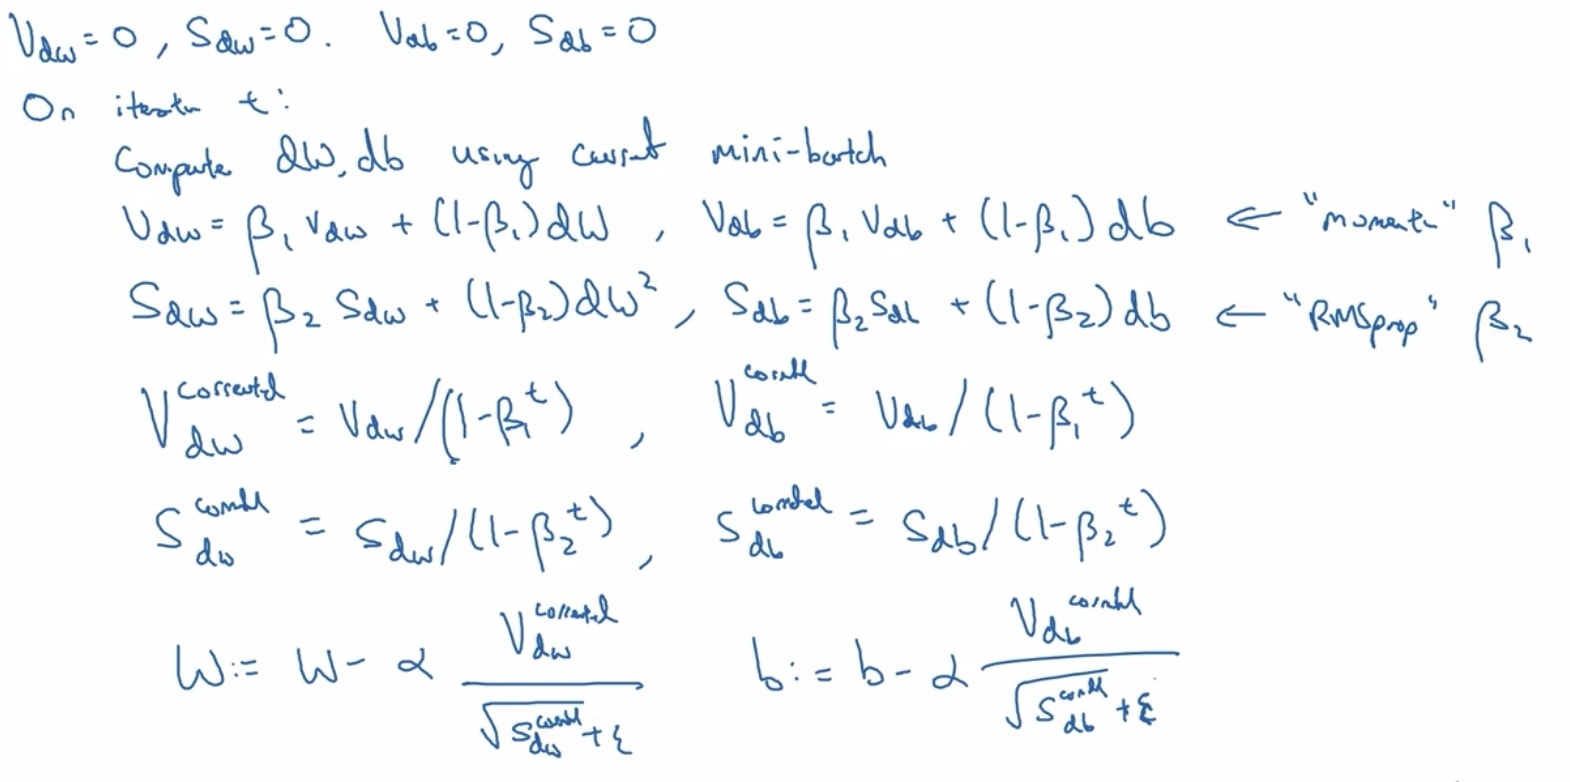 V_dw = 0, S_dw = 0. V_db = 0, S_db = 0
On iteratn t:
Compute dW, db using current mini-batch
V_dw = β₁ V_dw + (1-β₁) dW, V_db = β₁ V_db + (1-β₁) db ← "momentu" β₁
S_dw = β₂ S_dw + (1-β₂) dW², S_db = β₂ S_db + (1-β₂) db ← "RMSprop" β₂
V_dw^corrected = V_dw/(1-β₁^t), V_db^corrected = V_db/(1-β₁^t)
S_dw^corrected = S_dw/(1-β₂^t), S_db^corrected = S_db/(1-β₂^t)
W := W - α V_dw^corrected / (√S_dw^corrected + ε) b := b - α V_db^corrected / (√S_db^corrected + ε)